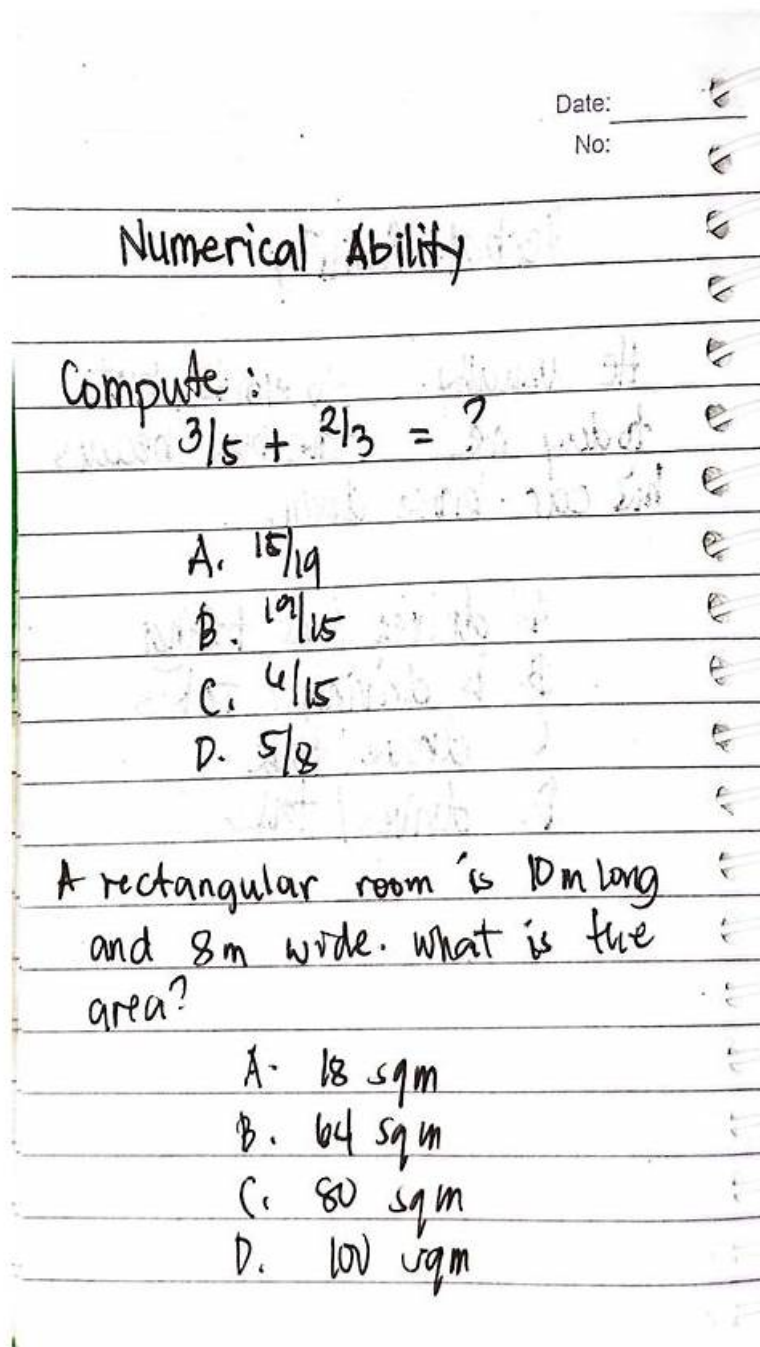 Date:
No:
Numerical Ability
Compute :
3/5 + 2/3 = ?
A. 15/19
B. 19/15
C. 4/15
D. 5/8
A rectangular room is 10m long
and 8m wide. what is the
area?
A. 18 sqm
B. 64 sqm
C. 80 sqm
D. 100 sqm